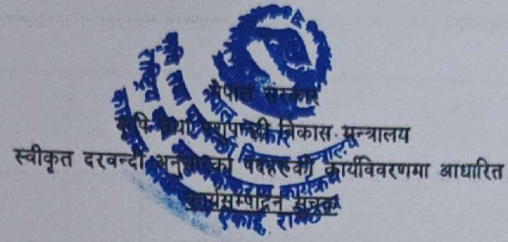 नेपाल सरकार
कृषि तथा पशुपन्छी विकास मन्त्रालय
स्वीकृत दरवन्दी अनुसारका पदहरुको कार्यविवरणमा आधारित
कार्यसम्पादन सूचक